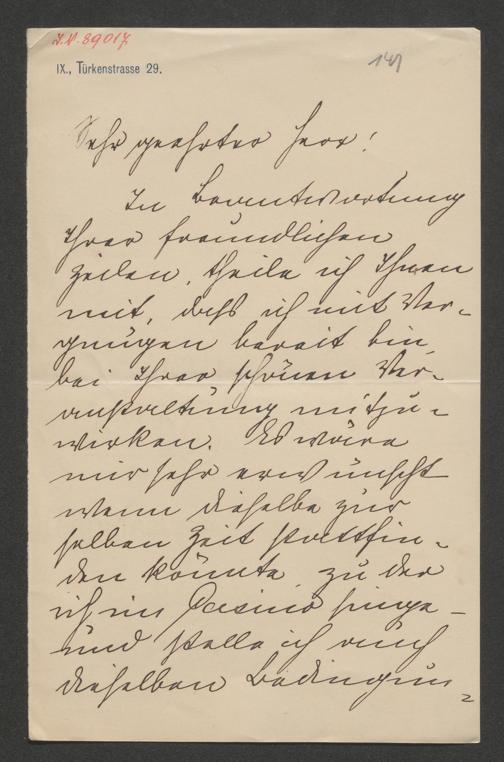 I.N. 89017
IX., Türkenstrasse 29.
141
Sehr geehrter Herr!
In Beantwortung
Ihrer freundlichen
Zeilen, theile ich Ihnen
mit, daß ich mit Ver-
gnügen bereit bin,
bei Ihrer schönen Ver-
anstaltung mitzu-
wirken. Es wäre
mir sehr erwünscht
wenn dieselbe zur
selben Zeit stattfin-
den könnte, zu der
ich im Casino singe -
und stelle ich auch
dieselben Bedingun-